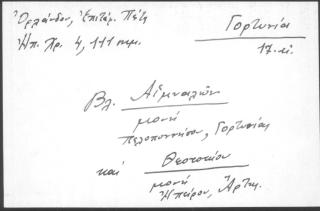 Ὀρλάνδου, Ἐπιτύμ. Πέτρ.
Ἠπ. Χρ. 4, 111 σημ.
Γορτυνία
17.κ.
Βλ. Αἰμυαλῶν
μονή
Πελοποννήσου, Γορτυνίας
καὶ Θεοτοκίου
μονή
Ἠπείρου, Ἄρτης.